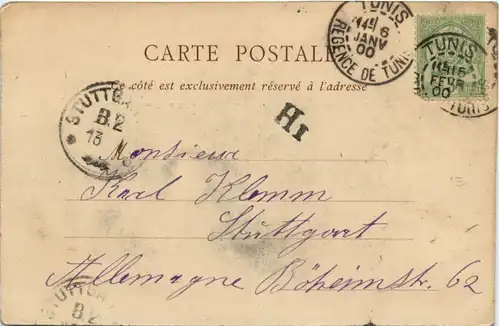 TUNIS
14 6
JANV
00
REGENCE DE TUNIS
TUNIS
FEVR
00
TUNIS
CARTE POSTALE
Ce côté est exclusivement réservé à l'adresse
STUTTG
B.2
13
H1
Monsieur
Karl Klemm
Stuttgart
Allemagne Böheimstr. 62
STUTTG
B2